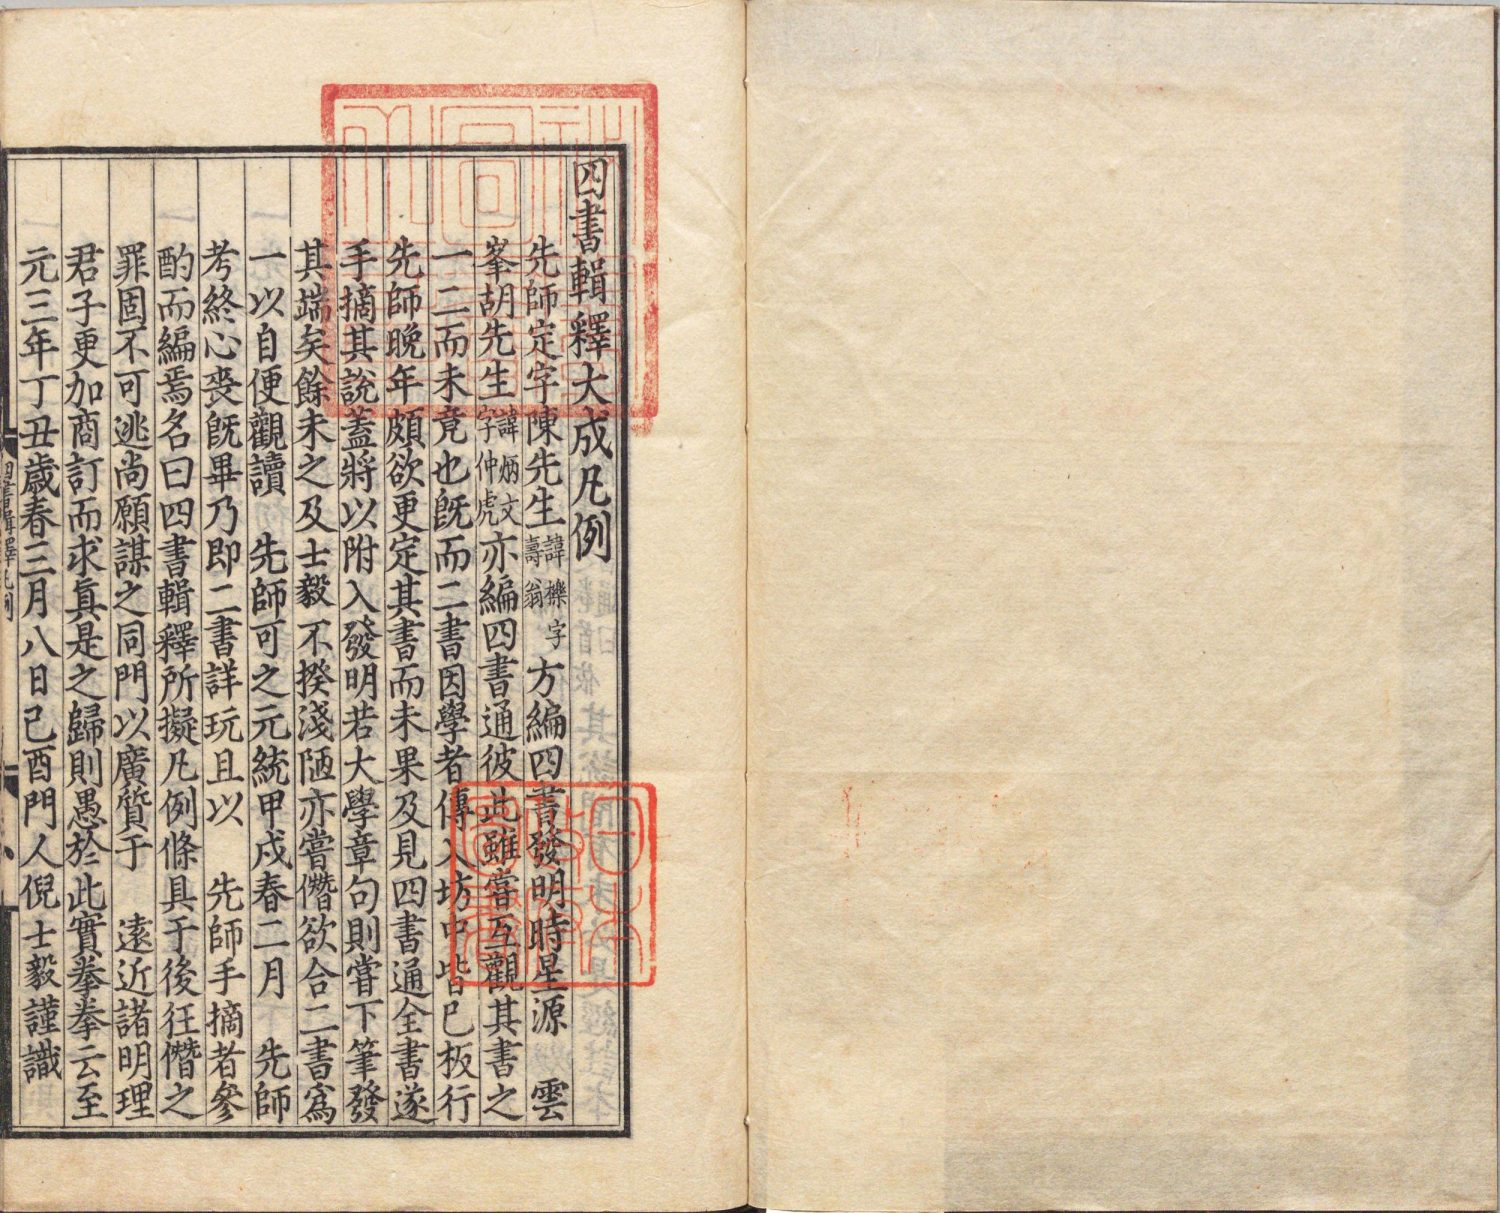 四書輯釋大成凡例
先師定宇陳先生諱櫟字壽翁方編四書發明時星源　雲
峯胡先生諱炳文字仲虎亦編四書通彼此雖嘗互觀其書之
一二而未竟也旣而二書因學者傳入坊中皆已板行
先師晩年頗欲更定其書而未果及見四書通全書遂
手摘其說蓋將以附入發明若大學章句則嘗下筆發
其端矣餘未之及士毅不揆淺陋亦嘗僭欲合二書爲
一以自便觀讀　先師可之元統甲戍春二月　先師
考終心喪旣畢乃即二書詳玩且以　先師手摘者參
酌而編焉名曰四書輯釋所擬凡例條具于後徃僭之
罪固不可逃尚願謀之同門以廣質于　遠近諸明理
君子更加商訂而求眞是之歸則愚於此實拳拳云至
元三年丁丑歳春三月八日己酉門人倪士毅謹識
四書輯釋凡例